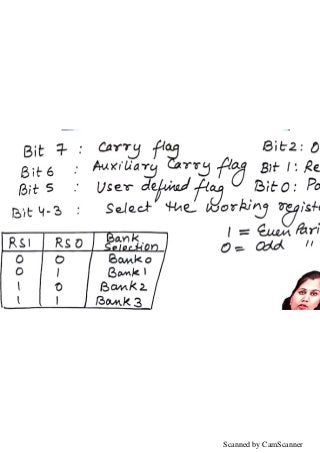 Bit 7 : Carry flag Bit 2: O
Bit 6 : Auxiliary Carry flag Bit 1: Re
Bit 5 : User defined flag Bit 0: Pa
Bit 4-3 : Select the working regist
1 = Even Pari
0 = Odd "
RS1 RS0 Bank Selection
0 0 Bank 0
0 1 Bank 1
1 0 Bank 2
1 1 Bank 3
Scanned by CamScanner